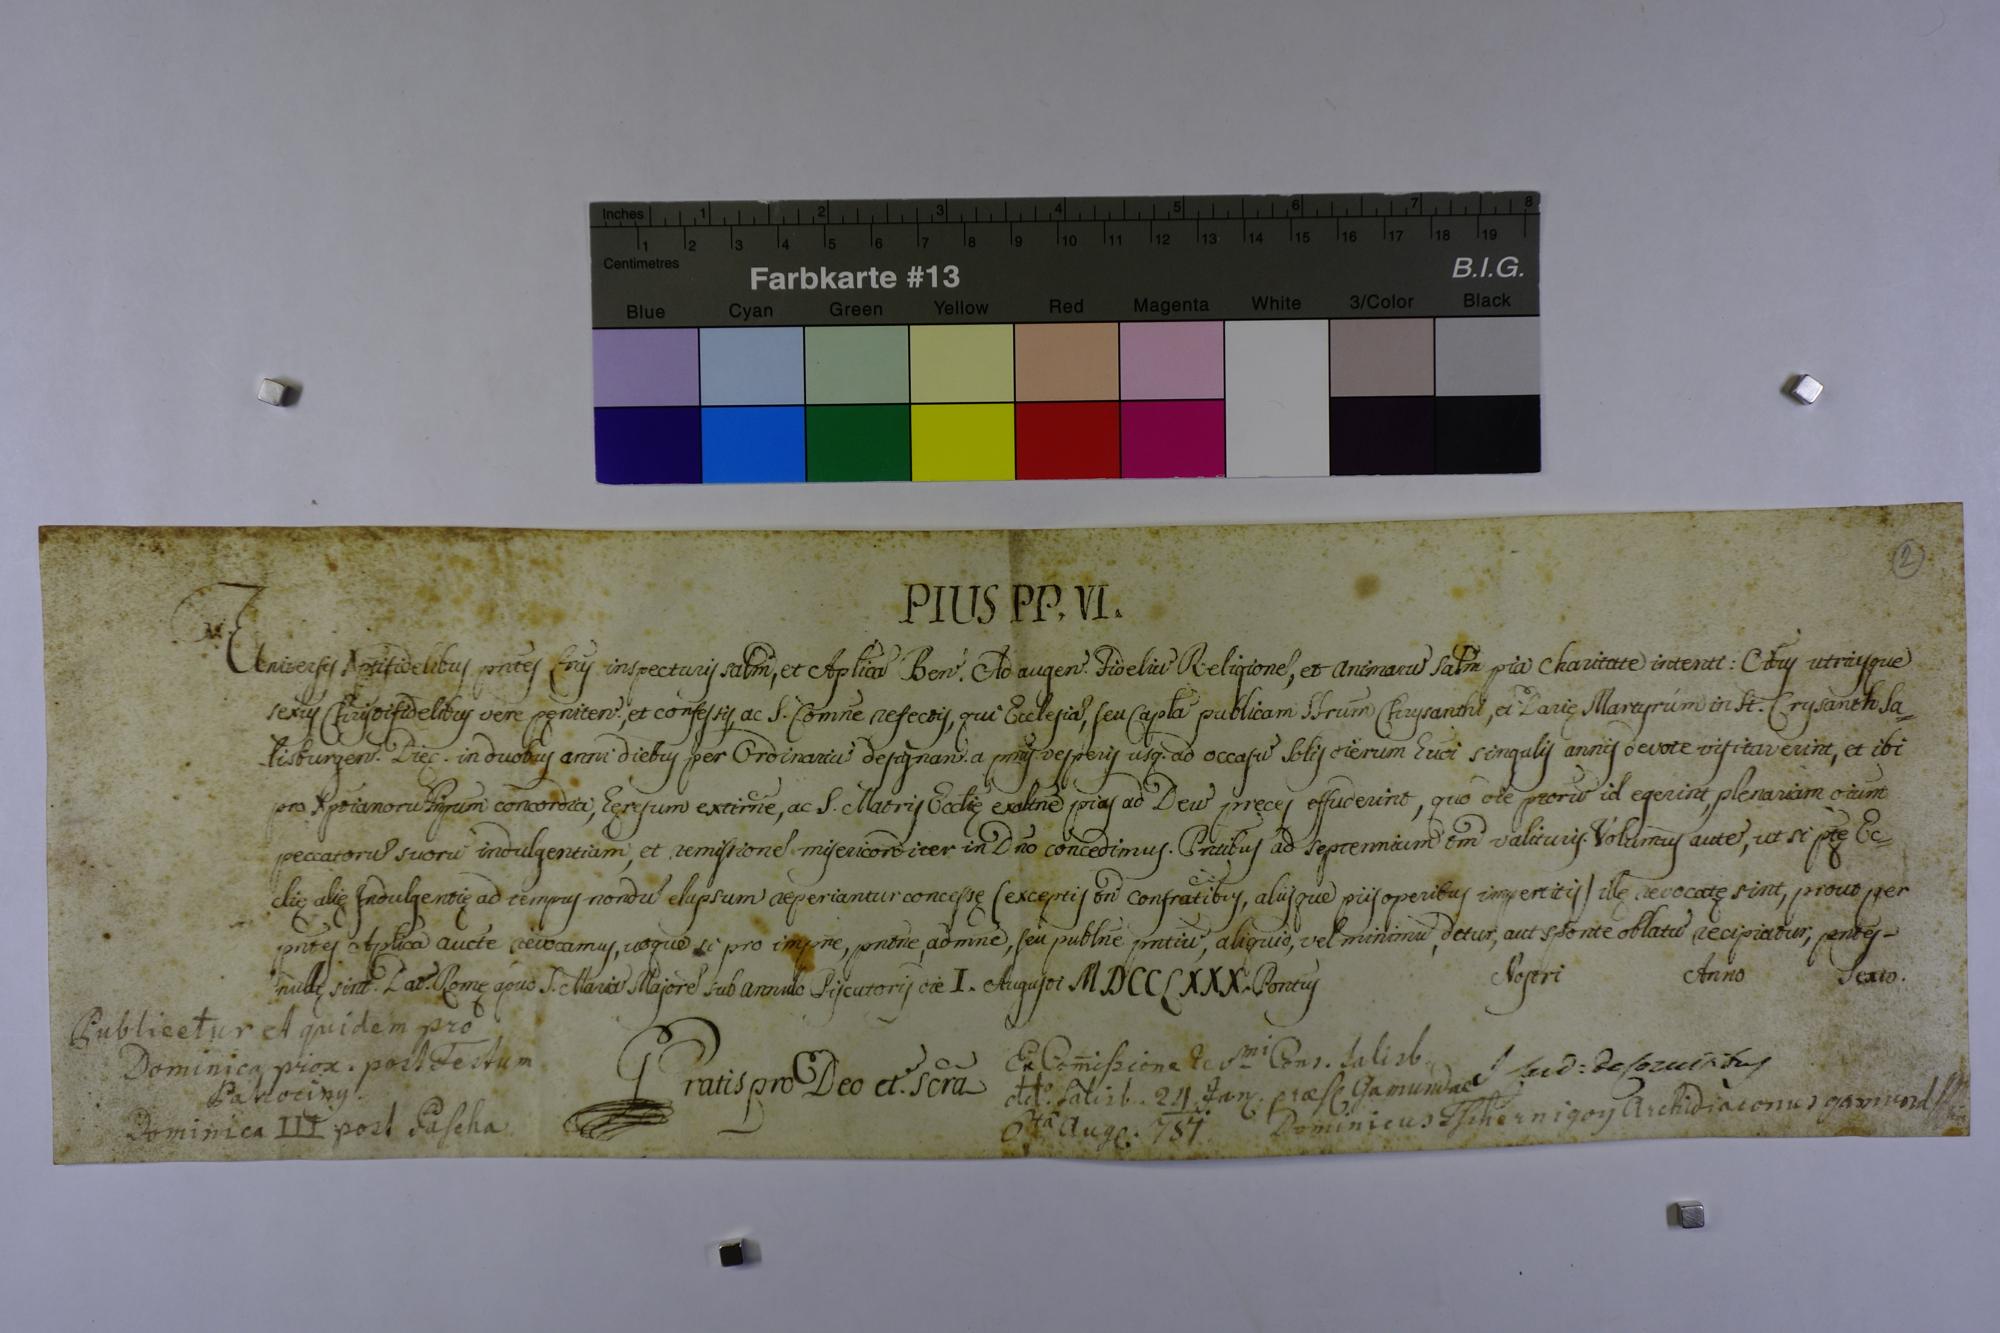 Inches 1 2 3 4 5 6 7 8
1 2 3 4 5 6 7 8 9 10 11 12 13 14 15 16 17 18 19
Centimetres
Farbkarte #13
B.I.G.
Blue Cyan Green Yellow Red Magenta White 3/Color Black
2
PIUS PP. VI.
Universis Xptifidelibus pntes Lras inspecturis saltm, et Aplicã Ben. Ad augen. Fideliu Religione, et animaru saltm pia charitate intenti: Oibus utriusque
sexus Christifidelibus vere peniten. et confessis, ac S. Comne refectis, qui Ecclesia, seu Capla publicam SSrum Chrysanthi, et Darię Martyrum in St. Crysanth Sa-
lisburgen. Diec. in duobus anni diebus per Ordinariu designan. a primis vesperis usq. ad occasu Solis dierum huoi singulis annis devote visitaverint, et ibi
pro Xptianoru Ppum concordia, heresum extirne, ac S. Matris Ecclię exaltne pias ad Deu preces effuderint, quo die prœru id egerint, plenariam oium
peccatoru suoru indulgentiam, et remissione misericorditer in Dno concedimus. Pntibus ad septennium tm valituris. Volumus aute, ut si ptę Ec-
clię alię Indulgentię ad tempus nondu elapsum reperiantur concessę (exceptis tn confratibus, aliisque piis operibus impertitis) illę revocatę sint, prout per
pntes Aplica aucte revocamus, utque si pro impne, pntne, admne, seu publne pntiu, aliquid, vel minimu, detur, aut sponte oblatu recipiatur, pntes-
nullę sint. Dat. Romę apud S. Maria Majore sub annulo Piscatoris die I. Augusti MDCCLXXX. Pontus Nostri Anno Sexto.
Publicetur et quidem pro
Dominica prox. post Festum
Patrociny.
Dominica III post Pascha
Gratis pro Deo et Scra
Ex Comissione Revmi Cons. Salisb.
dd. Salisb. 24 Jan. præs. Gamundae
8ta Aug. 787.
Dominicus Tschernigoy Archidiaconus gamund